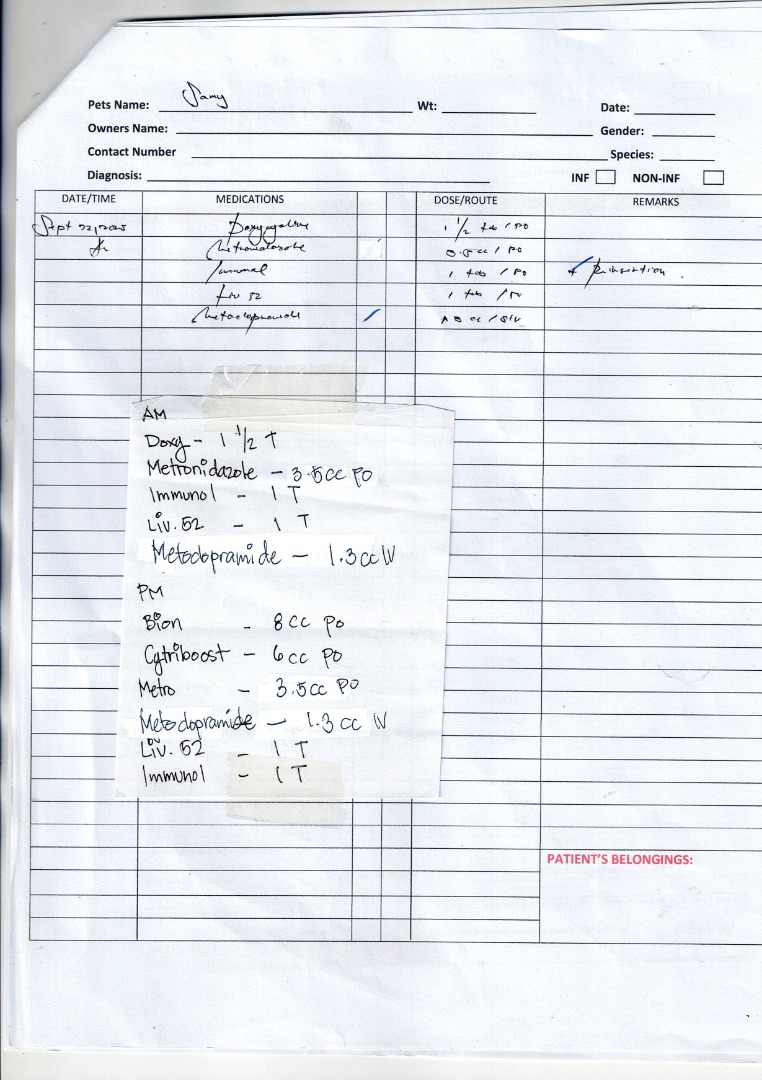 Pets Name: Samy Wt: Date:
Owners Name: Gender:
Contact Number Species:
Diagnosis: INF NON-INF
DATE/TIME MEDICATIONS DOSE/ROUTE REMARKS
Sept 22, 2025 Doxycycline 1 1/2 tab / PO
Metronidazole cc / PO
Immunol 1 tab / PO
Liv 52 1 tab / PO
Metoclopramide cc /
AM
Doxy - 1 1/2 T
Metronidazole - 3.5cc PO
Immunol - 1 T
Liv. 52 - 1 T
Metoclopramide - 1.3 cc IV
PM
Bion - 8cc PO
Cytriboost - 6cc PO
Metro - 3.5cc PO
Metoclopramide - 1.3 cc IV
Liv. 52 - 1 T
Immunol - 1 T
PATIENT'S BELONGINGS: